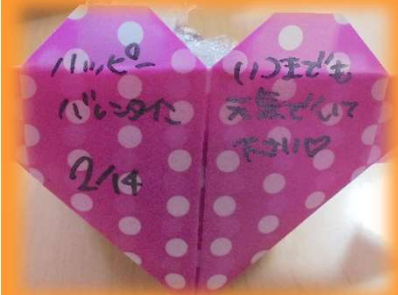 ハッピー
バレンタイン
2/14
いつまでも
元気でいて
下さい♡